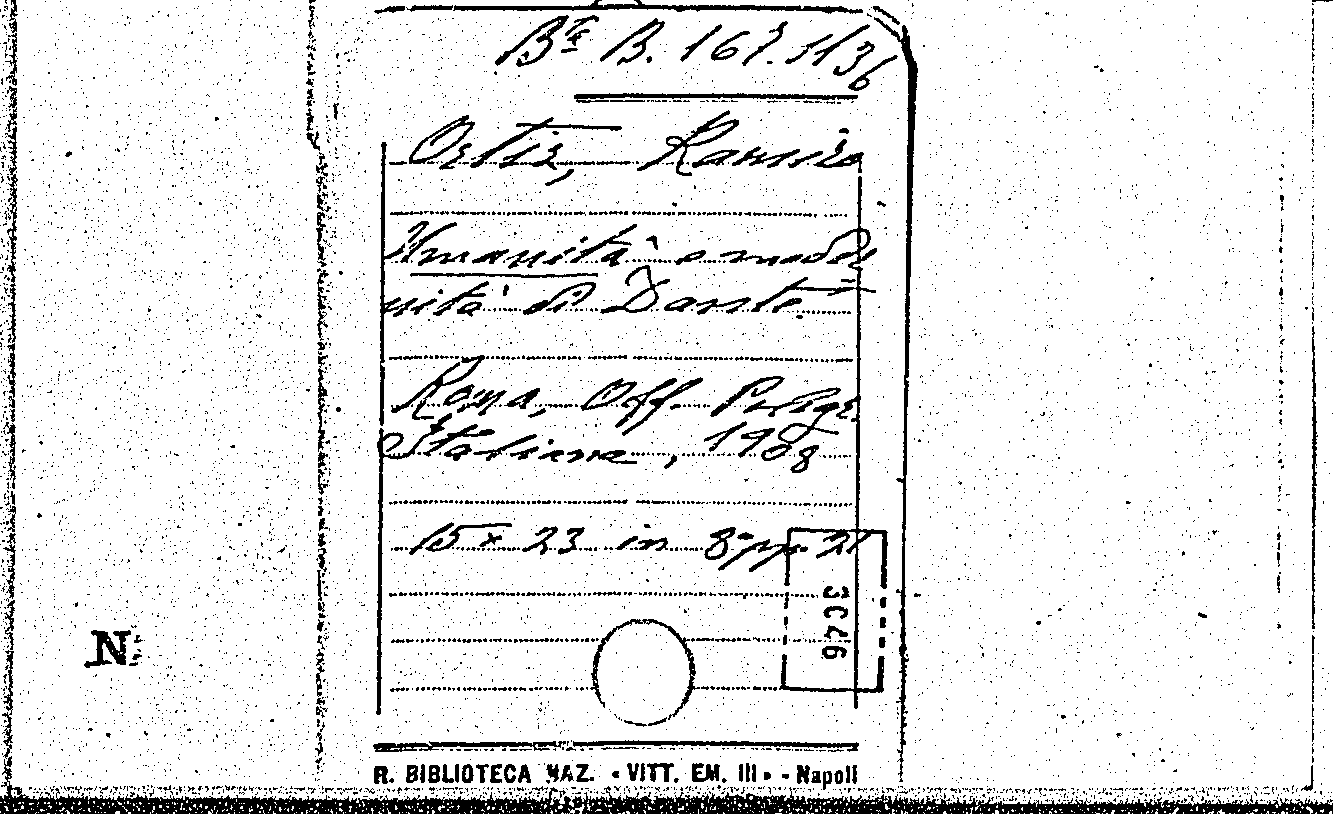 Bre B. 167.1136
Ortiz, Ramiro
Umanità e moder
nità di Dante.
Roma, Off. Poligr.
Italiana, 1908
15 x 23 in 8° pp. 21
3046
N
R. BIBLIOTECA NAZ. « VITT. EM. III » - Napoli